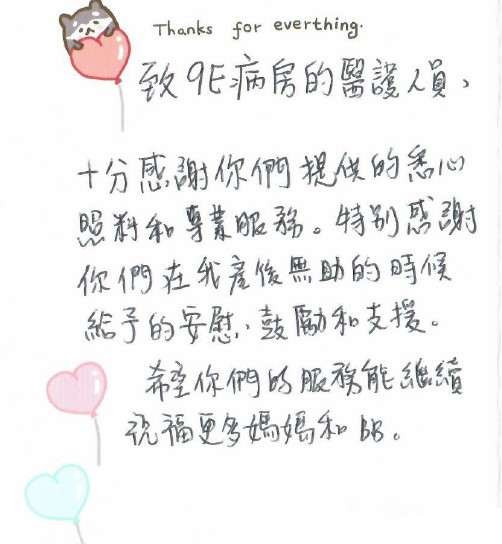 Thanks for everthing.
致9E病房的醫護人員,
十分感謝你們提供的悉心
照料和專業服務。特別感謝
你們在我產後無助的時候
給予的安慰、鼓勵和支援。
希望你們的服務能繼續
祝福更多媽媽和BB。